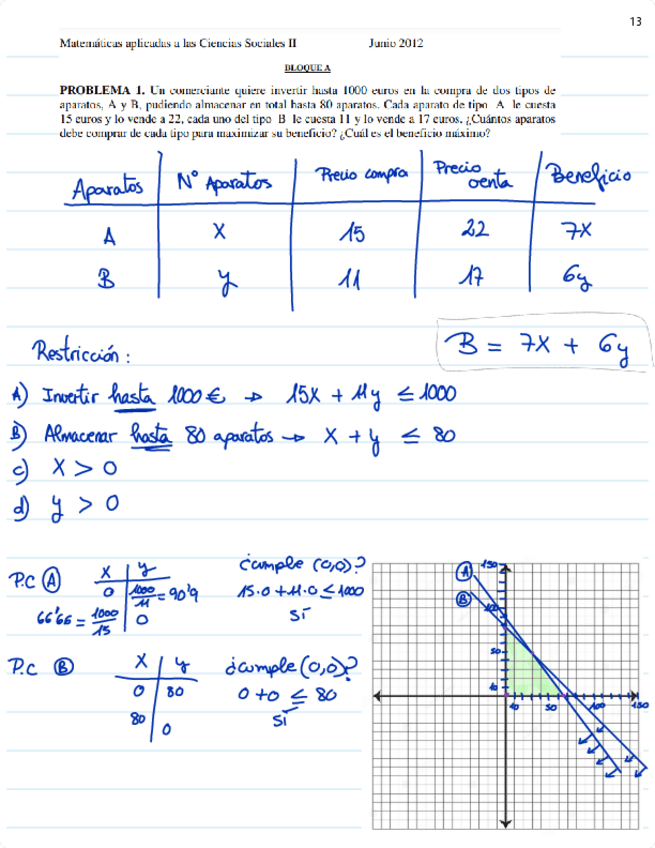 13
Matemáticas aplicadas a las Ciencias Sociales II Junio 2012
BLOQUE A
PROBLEMA 1. Un comerciante quiere invertir hasta 1000 euros en la compra de dos tipos de
aparatos, A y B, pudiendo almacenar en total hasta 80 aparatos. Cada aparato de tipo A le cuesta
15 euros y lo vende a 22, cada uno del tipo B le cuesta 11 y lo vende a 17 euros. ¿Cuántos aparatos
debe comprar de cada tipo para maximizar su beneficio? ¿Cuál es el beneficio máximo?
Aparatos Nº Aparatos Precio compra Precio venta Beneficio
A x 15 22 7x
B y 11 17 6y
B = 7x + 6y
Restricción:
A) Invertir hasta 1000 € → 15x + 11y ≤ 1000
B) Almacenar hasta 80 aparatos → x + y ≤ 80
c) x > 0
d) y > 0
P.C (A) x y
0 1000/11 = 90'9
66'66 = 1000/15 0
¿cumple (0,0)?
15·0 + 11·0 ≤ 1000
SÍ
P.C (B) x y
0 80
80 0
¿cumple (0,0)?
0+0 ≤ 80
SÍ
A
B
150
100
50
10
10 50 100 150